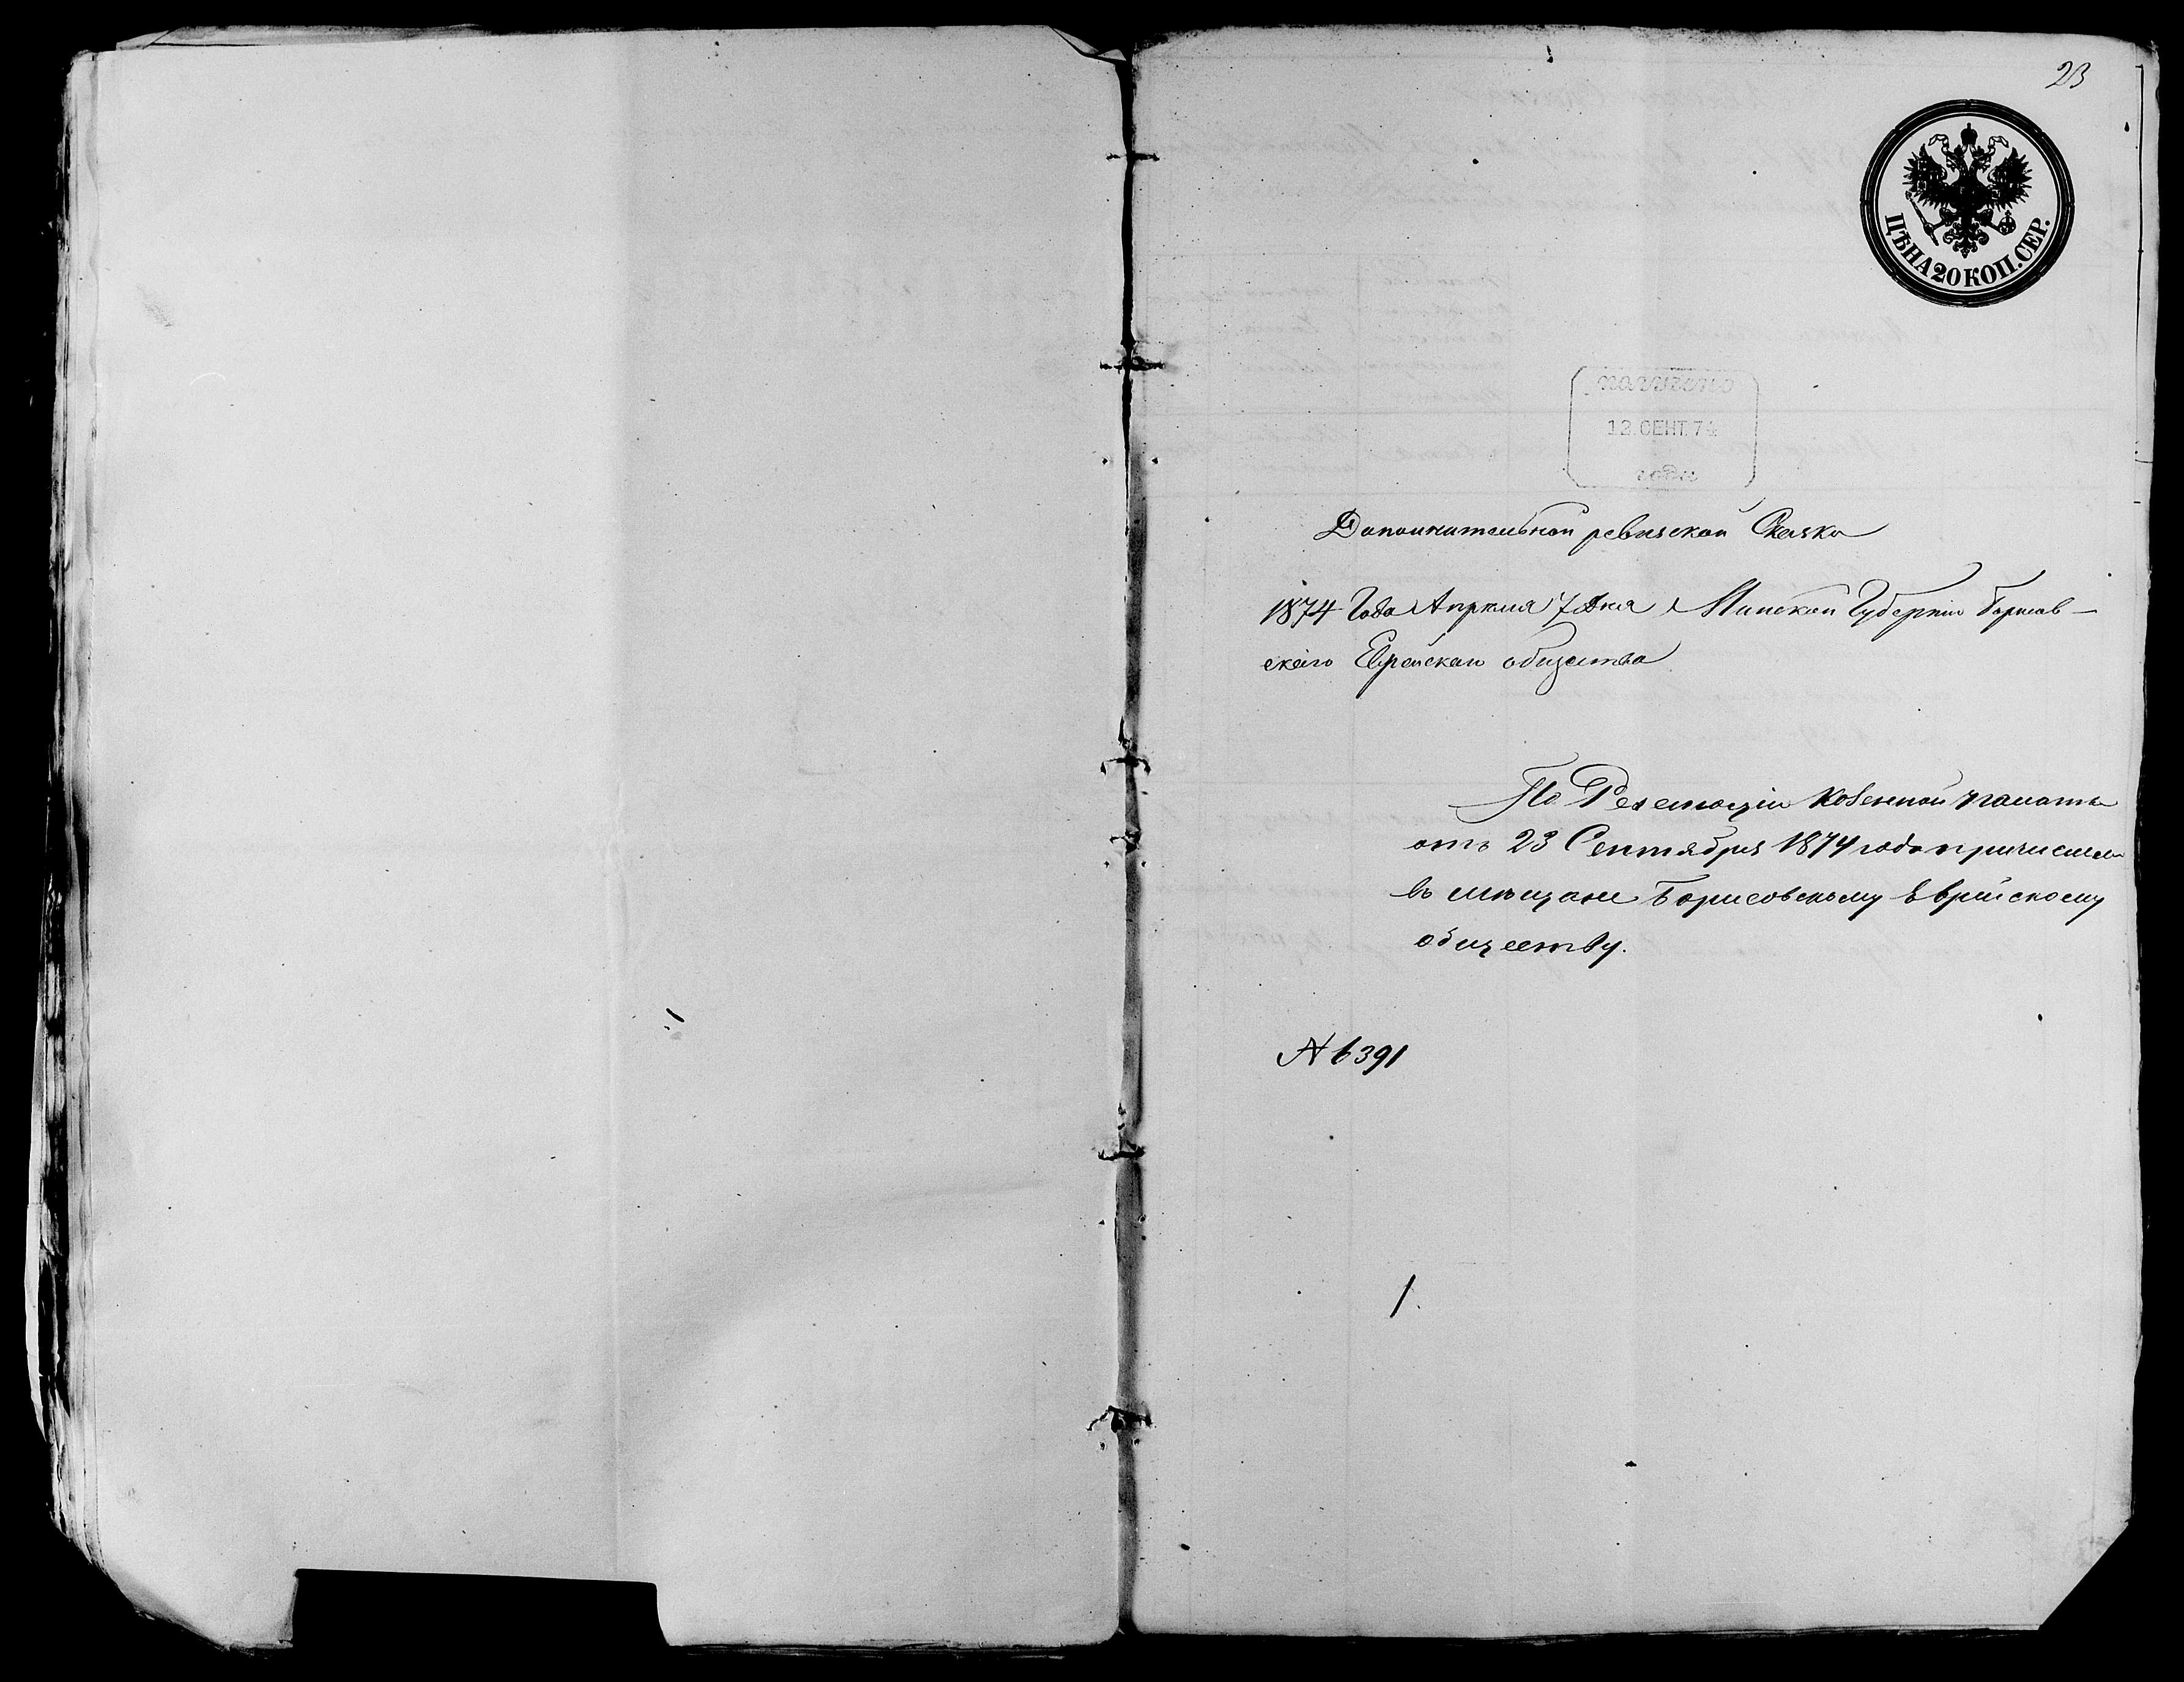 23
ЦѢНА 20 КОП. СЕР.
получено
12 СЕНТ. 74
года
Дополнительной ревизской Сказка
1874 Года Апреля 7 Дня Минской Губернии Борисов-
скаго Еврейскаго общества
По Резолюціи Казенной палаты
отъ 23 Сентября 1874 года причислен
въ мещане Борисовскому Еврейскому
обществу.
№ 6391
1.